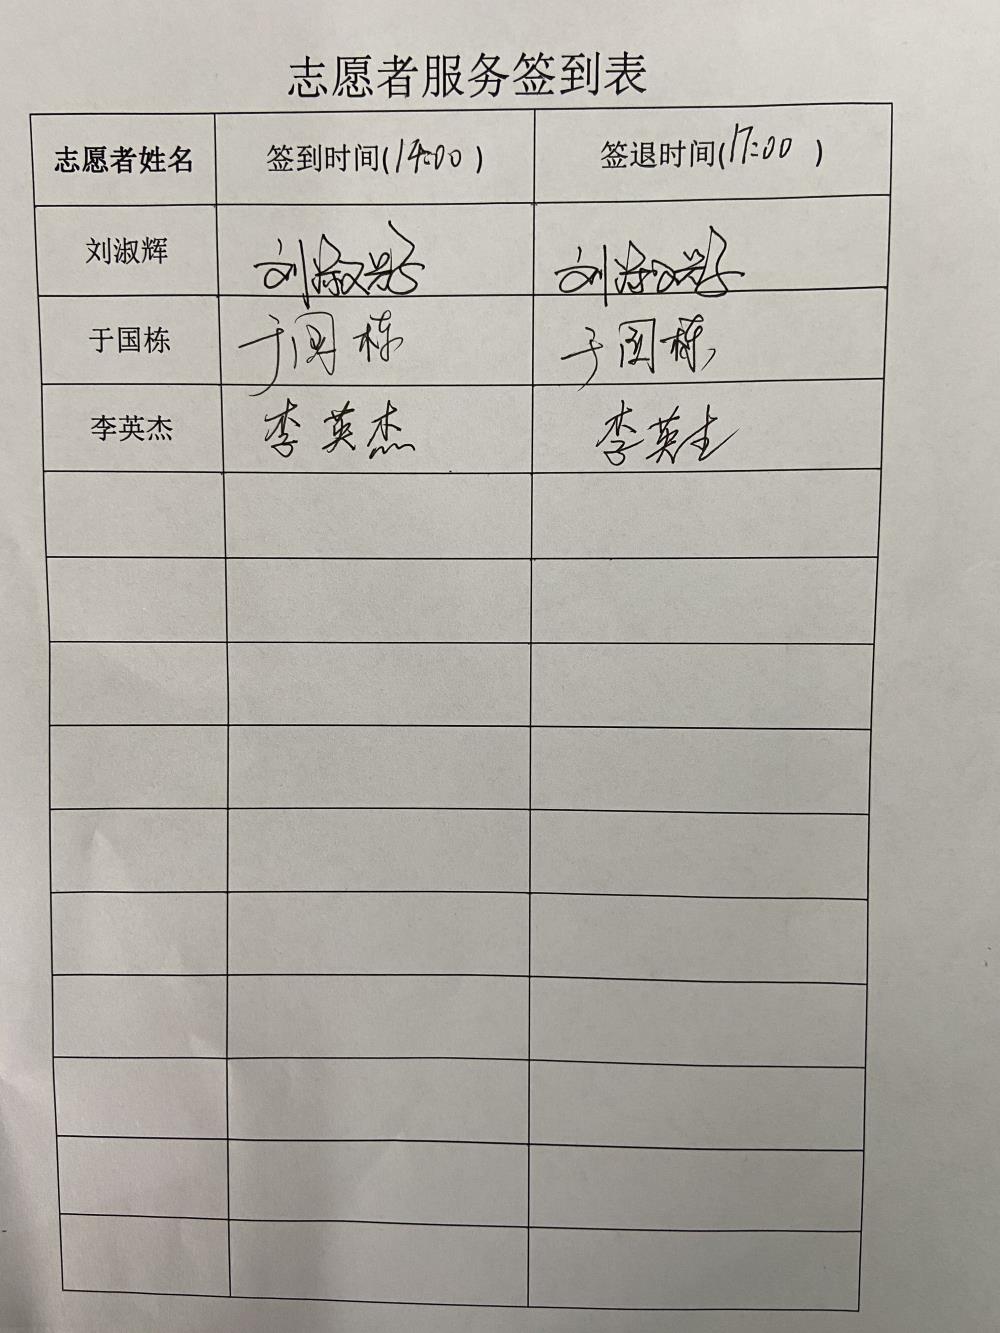 志愿者服务签到表
志愿者姓名 签到时间(14:00) 签退时间(17:00)
刘淑辉 刘淑辉 刘淑辉
于国栋 于国栋 于国栋
李英杰 李英杰 李英杰